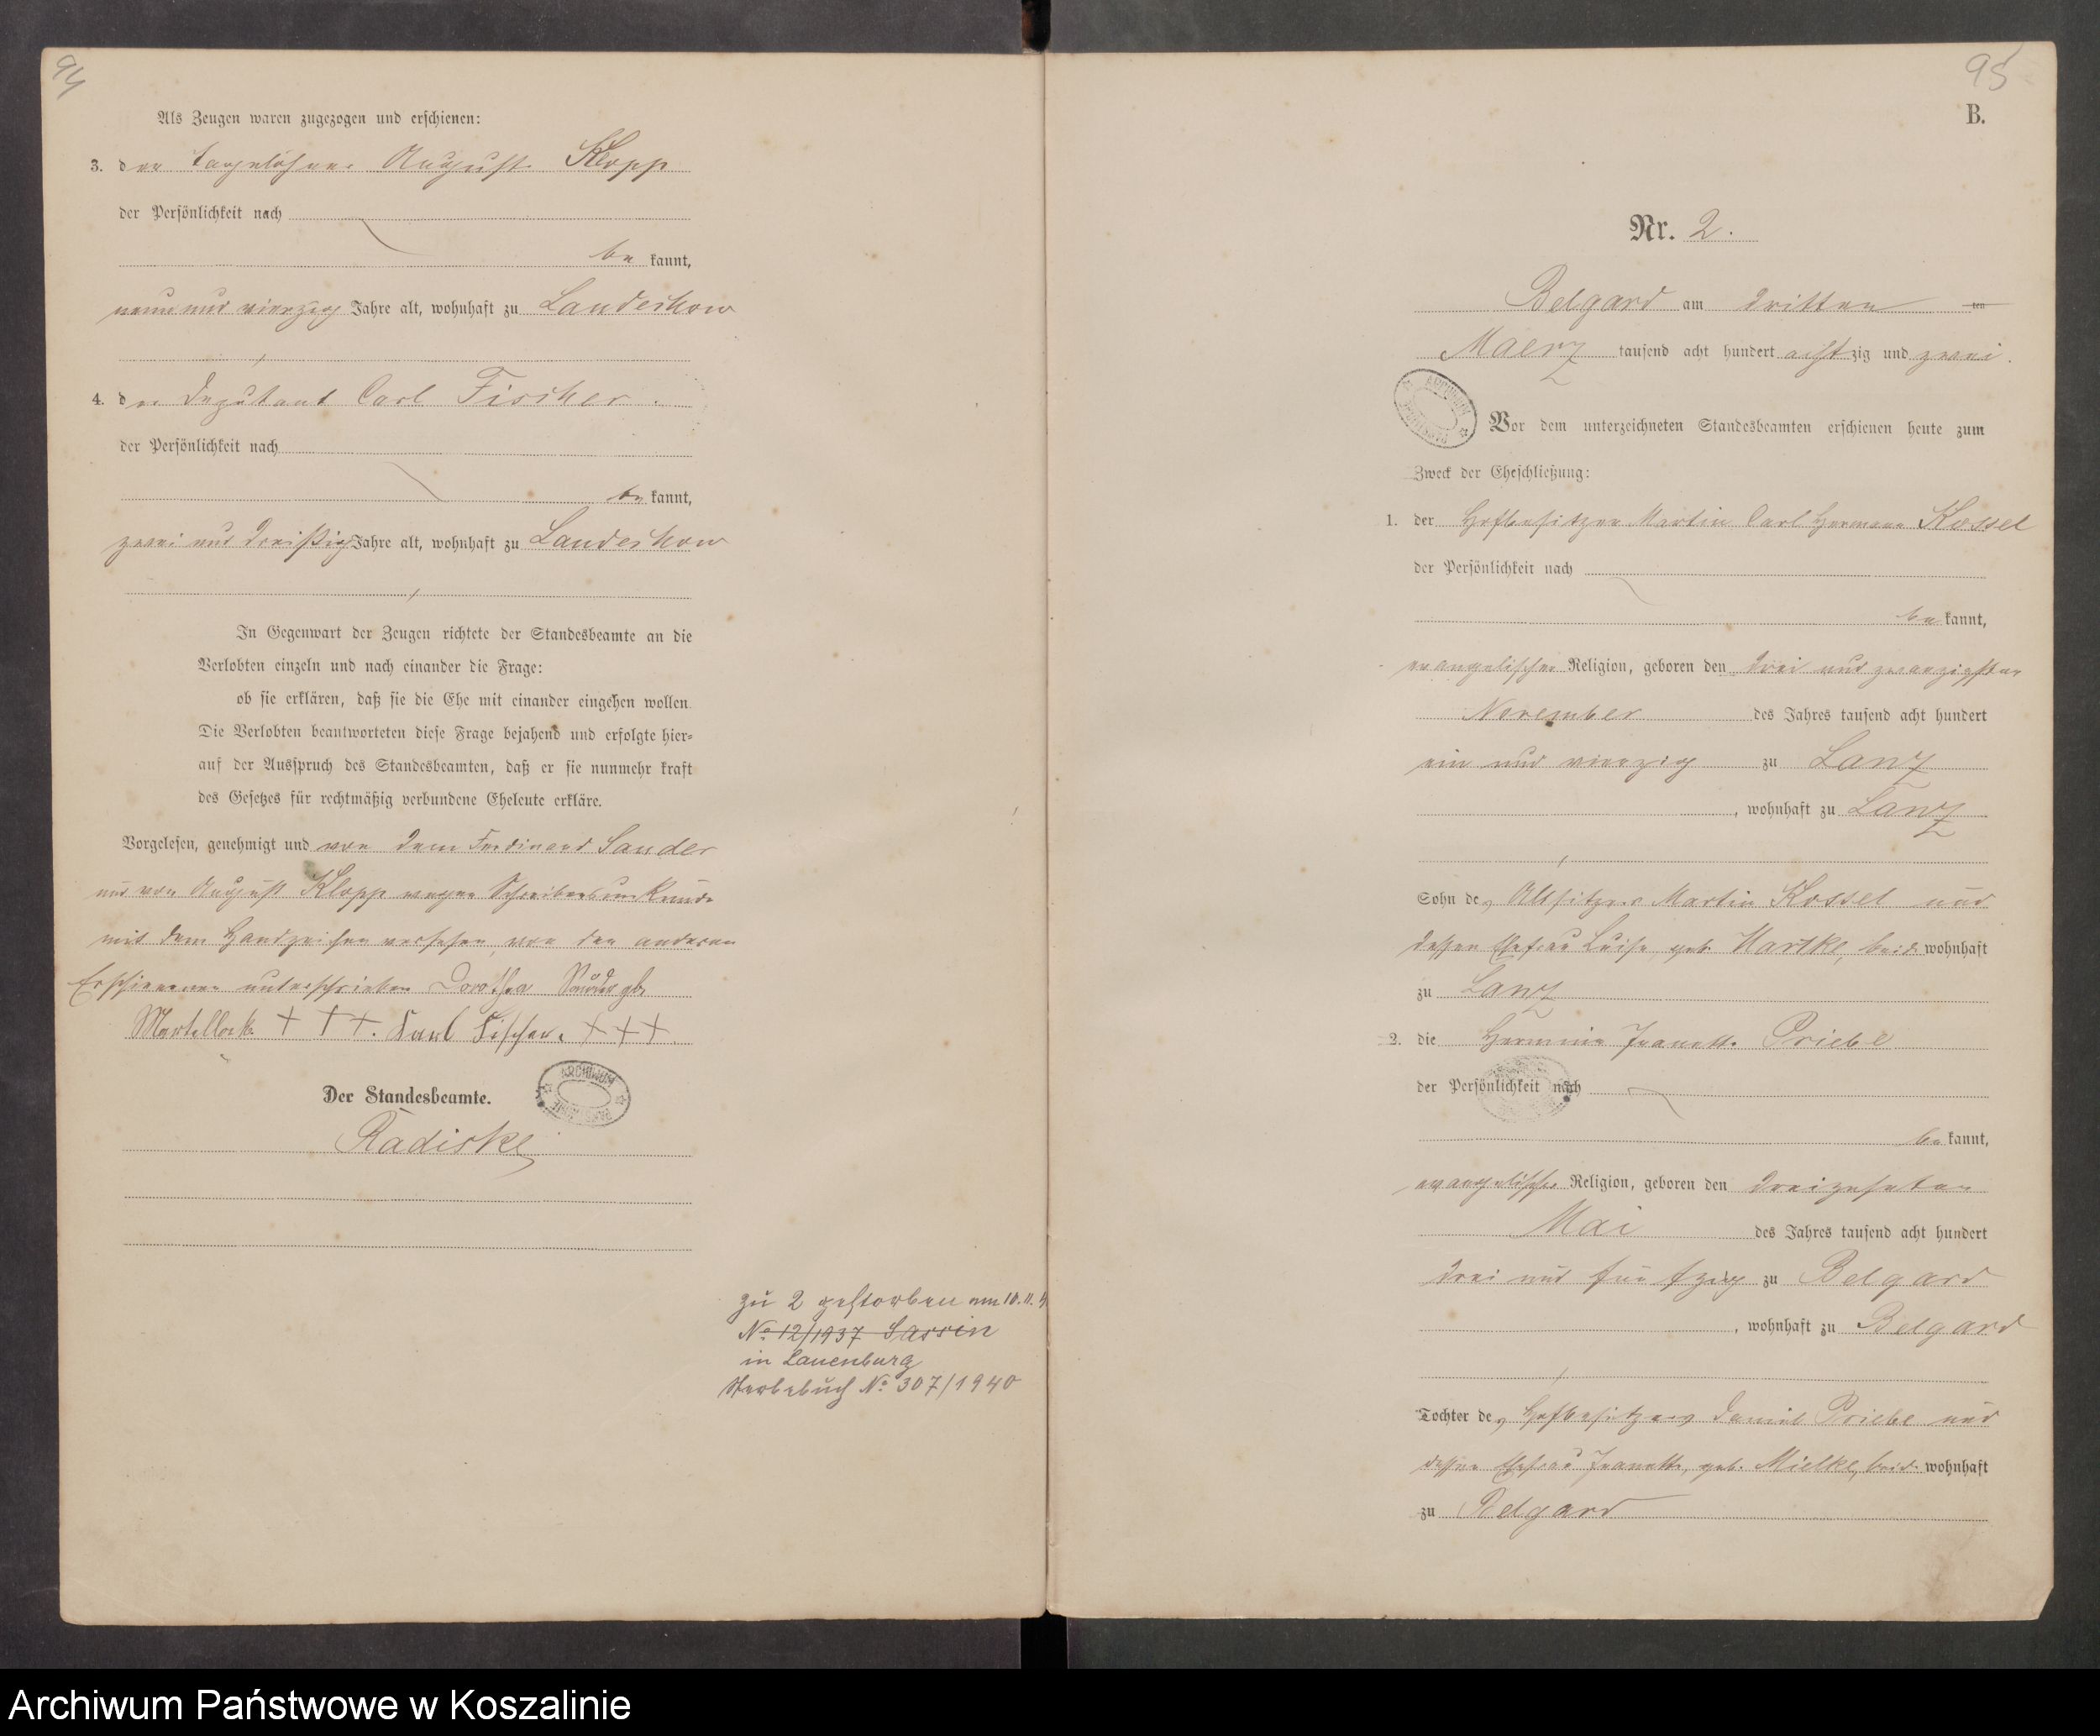 94
Als Zeugen waren zugezogen und erschienen:
3. der Tagelöhner August Klopp
der Persönlichkeit nach
be kannt,
neun und vierzig Jahre alt, wohnhaft zu Landechow
4. der Deputant Carl Fischer.
der Persönlichkeit nach
be kannt,
zwei und dreißig Jahre alt, wohnhaft zu Landechow
In Gegenwart der Zeugen richtete der Standesbeamte an die
Verlobten einzeln und nach einander die Frage:
ob sie erklären, daß sie die Ehe mit einander eingehen wollen.
Die Verlobten beantworteten diese Frage bejahend und erfolgte hier-
auf der Ausspruch des Standesbeamten, daß er sie nunmehr kraft
des Gesetzes für rechtmäßig verbundene Eheleute erkläre.
Vorgelesen, genehmigt und von dem Ferdinand Sander
und von August Klopp wegen Schreibensunkunde
mit dem Handzeichen versehen, von den anderen
Erschienenen unterschrieben Dorothea Sander gb.
+ + +. Karl Fischer. + + +
Der Standesbeamte.
ARCHIWUM
Radiske
zu 2 gestorben am 10.11.
No 12/1937 Sassin
in Lauenburg
Sterbebuch No 307/1940
95
B.
Nr. 2.
Belgard am dritten ten
Maerz tausend acht hundert acht zig und zwei.
ARCHIWUM
Vor dem unterzeichneten Standesbeamten erschienen heute zum
Zweck der Eheschließung:
1. der Hofbesitzer Martin Carl Hermann Kossel
der Persönlichkeit nach
be kannt,
evangelischer Religion, geboren den drei und zwanzigsten
November des Jahres tausend acht hundert
ein und vierzig zu Lanz
, wohnhaft zu Lanz
Sohn des Altsitzers Martin Kossel und
dessen Ehefrau Luise geb. Nartke, beide wohnhaft
zu Lanz
2. die Hermine Jeanette Priebe
der Persönlichkeit nach
be kannt,
evangelischer Religion, geboren den dreizehnten
Mai des Jahres tausend acht hundert
drei und fünfzig zu Belgard
, wohnhaft zu Belgard
Tochter des Hofbesitzers Daniel Priebe und
dessen Ehefrau Jeanette, geb. Mielke, beide wohnhaft
zu Belgard
Archiwum Państwowe w Koszalinie